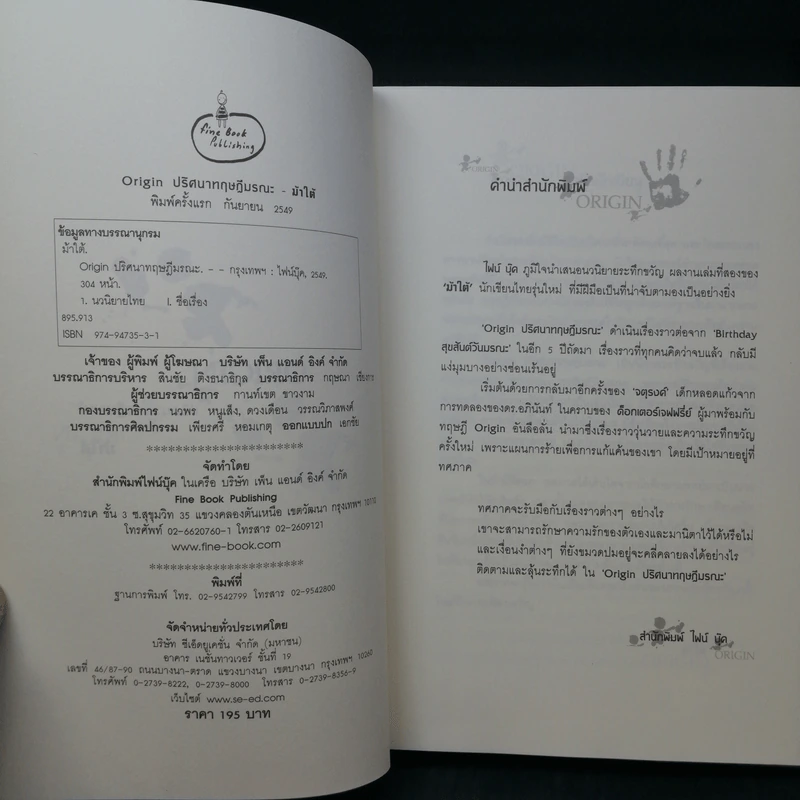 fine Book
Publishing
Origin ปริศนาทฤษฎีมรณะ - ม้าใต้
พิมพ์ครั้งแรก กันยายน 2549
ข้อมูลทางบรรณานุกรม
ม้าใต้.
Origin ปริศนาทฤษฎีมรณะ. - - กรุงเทพฯ : ไฟน์บุ๊ค, 2549.
304 หน้า.
1. นวนิยายไทย I. ชื่อเรื่อง
895.913
ISBN 974-94735-3-1
เจ้าของ ผู้พิมพ์ ผู้โฆษณา บริษัท เพ็น แอนด์ อิงค์ จำกัด
บรรณาธิการบริหาร สินชัย ติงธนาธิกุล บรรณาธิการ กฤษณา
ผู้ช่วยบรรณาธิการ กานท์เขต ขาวงาม
กองบรรณาธิการ นวพร หนูเส็ง, ดวงเดือน วรรณวิภาสพงค์
บรรณาธิการศิลปกรรม เพียรศรี หอมเกตุ ออกแบบปก เอกชัย
* * * * * * * * * * * * * * * * * * * * * * *
จัดทำโดย
สำนักพิมพ์ไฟน์บุ๊ค ในเครือ บริษัท เพ็น แอนด์ อิงค์ จำกัด
Fine Book Publishing
22 อาคารเค ชั้น 3 ซ.สุขุมวิท 35 แขวงคลองตันเหนือ เขตวัฒนา กรุงเทพฯ 10110
โทรศัพท์ 02-6620760-1 โทรสาร 02-2609121
www.fine-book.com
* * * * * * * * * * * * * * * * * * * * * * *
พิมพ์ที่
ฐานการพิมพ์ โทร. 02-9542799 โทรสาร 02-9542800
จัดจำหน่ายทั่วประเทศโดย
บริษัท ซีเอ็ดยูเคชั่น จำกัด (มหาชน)
อาคาร เนชั่นทาวเวอร์ ชั้นที่ 19
เลขที่ 46/87-90 ถนนบางนา-ตราด แขวงบางนา เขตบางนา กรุงเทพฯ 10260
โทรศัพท์ 0-2739-8222, 0-2739-8000 โทรสาร 0-2739-8356-9
เว็บไซต์ www.se-ed.com
ราคา 195 บาท
คำนำสำนักพิมพ์
ORIGIN
ไฟน์ บุ๊ค ภูมิใจนำเสนอนวนิยายระทึกขวัญ ผลงานเล่มที่สองของ
'ม้าใต้' นักเขียนไทยรุ่นใหม่ ที่มีฝีมือเป็นที่น่าจับตามองเป็นอย่างยิ่ง
'Origin ปริศนาทฤษฎีมรณะ' ดำเนินเรื่องราวต่อจาก 'Birthday
สุขสันต์วันมรณะ' ในอีก 5 ปีถัดมา เรื่องราวที่ทุกคนคิดว่าจบแล้ว กลับมี
แง่มุมบางอย่างซ่อนเร้นอยู่
เริ่มต้นด้วยการกลับมาอีกครั้งของ 'จตุรงค์' เด็กหลอดแก้วจาก
การทดลองของดร.อภินันท์ ในคราบของ ด็อกเตอร์เจฟฟรีย์ ผู้มาพร้อมกับ
ทฤษฎี Origin อันลือลั่น นำมาซึ่งเรื่องราววุ่นวายและความระทึกขวัญ
ครั้งใหม่ เพราะแผนการร้ายเพื่อการแก้แค้นของเขา โดยมีเป้าหมายอยู่ที่
ทศภาค
ทศภาคจะรับมือกับเรื่องราวต่างๆ อย่างไร
เขาจะสามารถรักษาความรักของตัวเองและมานิตาไว้ได้หรือไม่
และเงื่อนงำต่างๆ ที่ยังขมวดปมอยู่จะคลี่คลายลงได้อย่างไร
ติดตามและลุ้นระทึกได้ ใน 'Origin ปริศนาทฤษฎีมรณะ'
สำนักพิมพ์ ไฟน์ บุ๊ค
ORIGIN